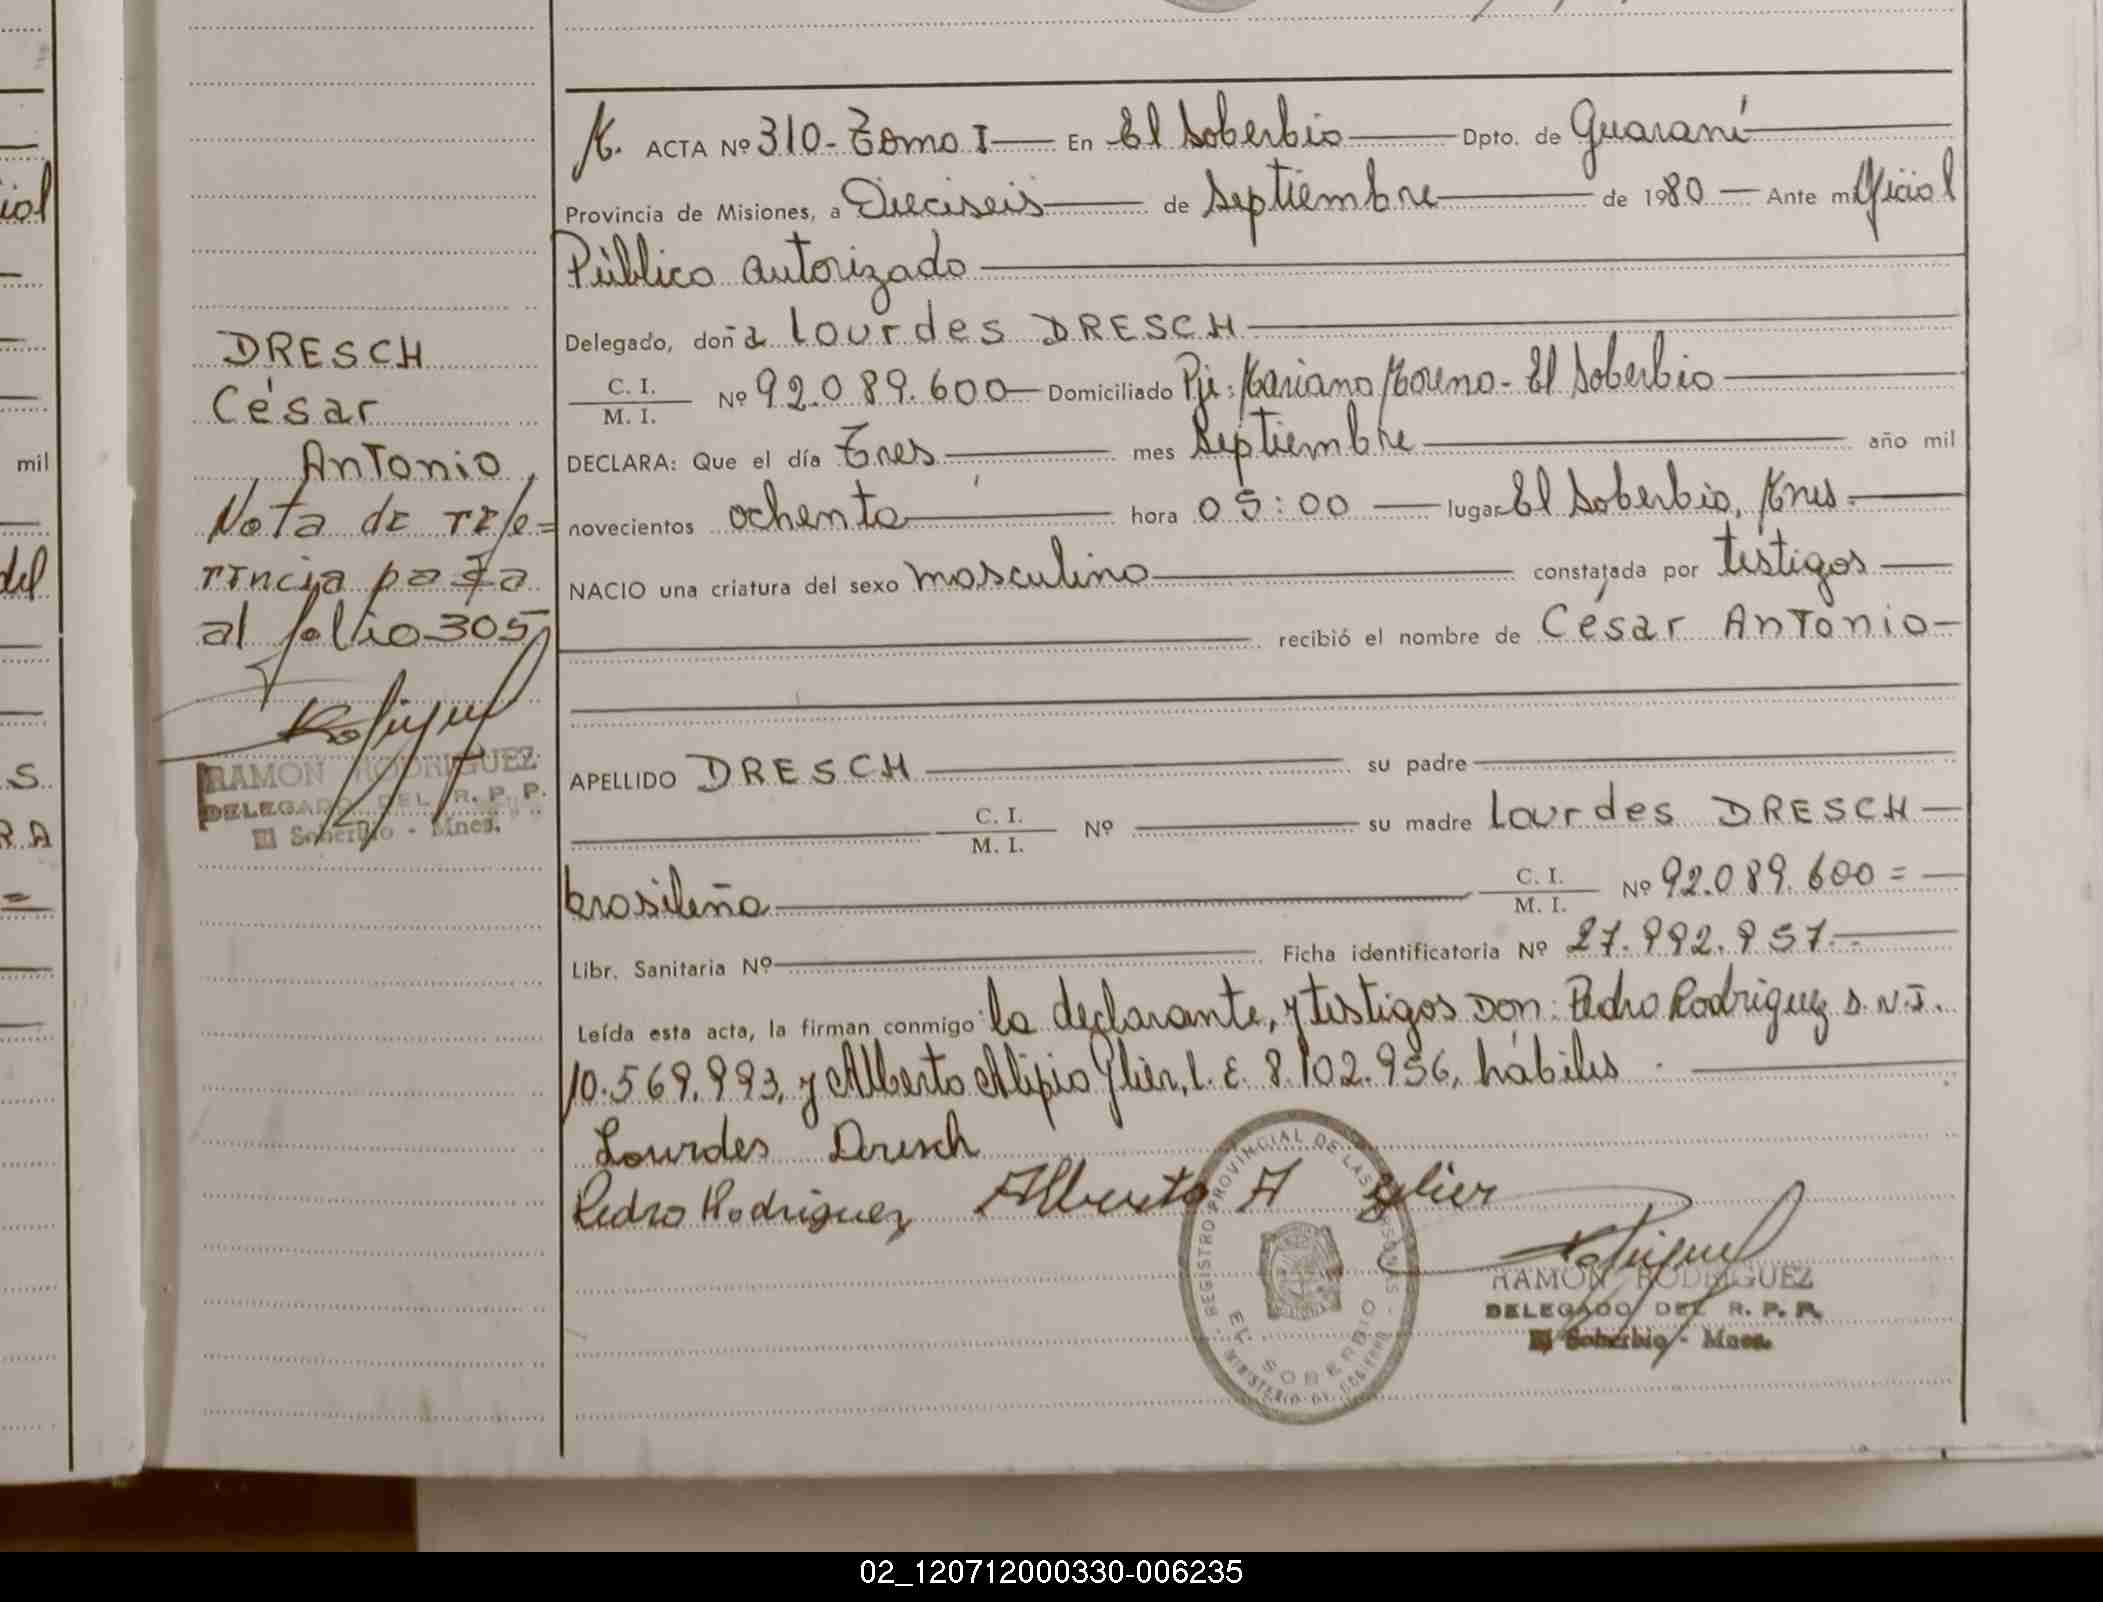 M. ACTA Nº 310-Tomo I En El Soberbio Dpto. de Guaraní
Provincia de Misiones, a Dieciseis de Septiembre de 1980 Ante mí Oficial
Público autorizado
Delegado, doña Lourdes DRESCH
C. I.
M. I.
Nº 92.089.600 Domiciliado Pje: Mariano Moreno-El Soberbio
DECLARA: Que el día Tres mes Septiembre año mil
novecientos ochenta hora 05:00 lugar El Soberbio, Mnes.
NACIO una criatura del sexo masculino constatada por testigos
recibió el nombre de César Antonio
APELLIDO DRESCH su padre
C. I.
M. I.
Nº su madre Lourdes DRESCH
brasileña
C. I.
M. I.
Nº 92.089.600=
Libr. Sanitaria Nº Ficha identificatoria Nº 27.992.957.-
Leída esta acta, la firman conmigo la declarante, y testigos Don: Pedro Rodriguez D.N.I.
10.569.993, y Alberto Alipio Glier, L.E. 8.102.956, hábiles.
Lourdes Dresch
Pedro Rodriguez Alberto A Glier
REGISTRO PROVINCIAL DE LAS PERSONAS
EL SOBERBIO
MINISTERIO DE GOBIERNO
RAMON RODRIGUEZ
DELEGADO DEL R. P. P.
El Soberbio - Mnes.
DRESCH
César
Antonio
Nota de refe=
rencia pasa
al folio 305
RAMON RODRIGUEZ
DELEGADO DEL R. P. P.
El Soberbio - Mnes.
mil
del
S.
RA
02_120712000330-006235